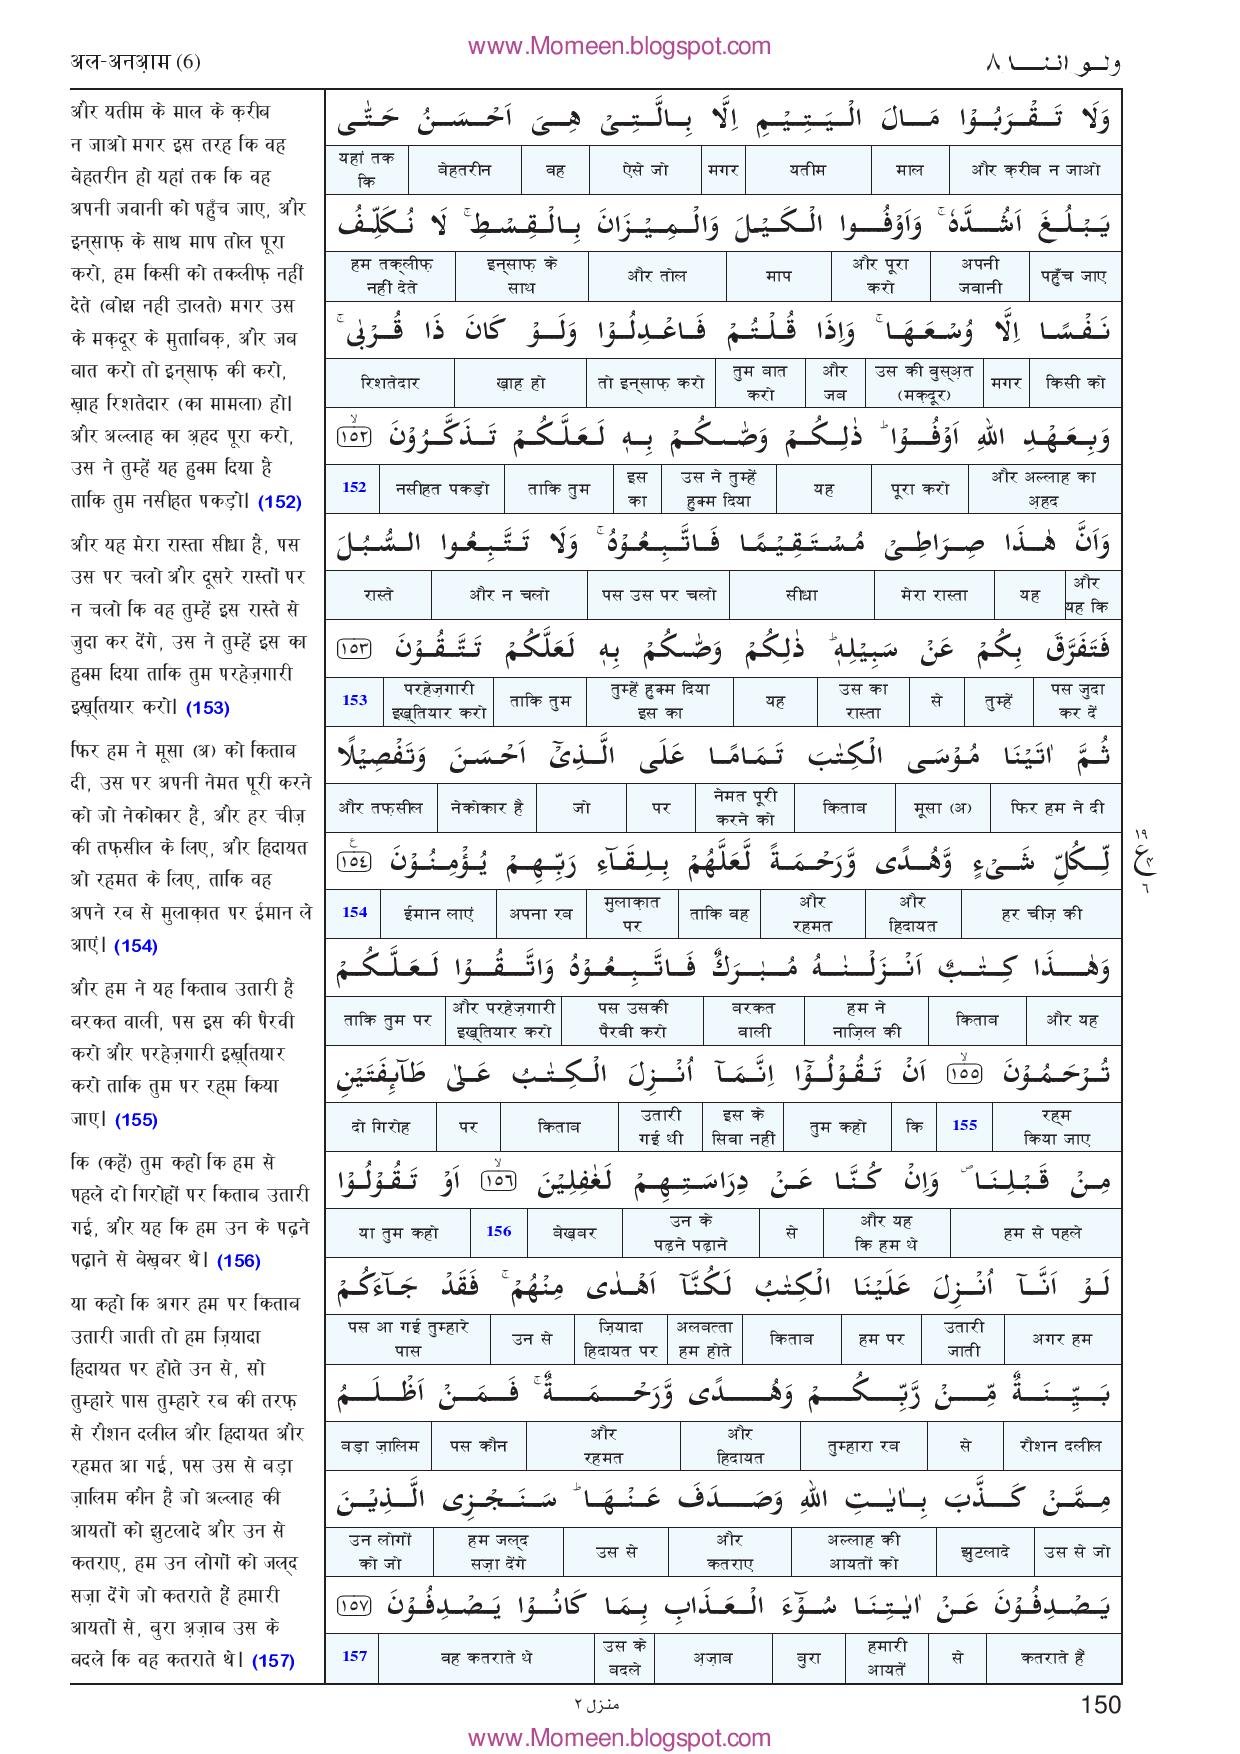 www.Momeen.blogspot.com
अल-अनआ़म (6)
ولو اننا ٨
और यतीम के माल के क़रीब
न जाओ मगर इस तरह कि वह
बेहतरीन हो यहां तक कि वह
अपनी जवानी को पहुँच जाए, और
इन्साफ़ के साथ माप तोल पूरा
करो, हम किसी को तकलीफ़ नहीं
देते (बोझ नहीं डालते) मगर उस
के मक़दूर के मुताबिक़, और जब
बात करो तो इन्साफ़ की करो,
ख़ाह रिशतेदार (का मामला) हो।
और अल्लाह का अ़हद पूरा करो,
उस ने तुम्हें यह हुक्म दिया है
ताकि तुम नसीहत पकड़ो। (152)
और यह मेरा रास्ता सीधा है, पस
उस पर चलो और दूसरे रास्तों पर
न चलो कि वह तुम्हें इस रास्ते से
जुदा कर देंगे, उस ने तुम्हें इस का
हुक्म दिया ताकि तुम परहेज़गारी
इख़्तियार करो। (153)
फिर हम ने मूसा (अ) को किताब
दी, उस पर अपनी नेमत पूरी करने
को जो नेकोकार है, और हर चीज़
की तफ़सील के लिए, और हिदायत
ओ रहमत के लिए, ताकि वह
अपने रब से मुलाक़ात पर ईमान ले
आएं। (154)
और हम ने यह किताब उतारी है
बरकत वाली, पस इस की पैरवी
करो और परहेज़गारी इख़्तियार
करो ताकि तुम पर रहम किया
जाए। (155)
कि (कहें) तुम कहो कि हम से
पहले दो गिरोहों पर किताब उतारी
गई, और यह कि हम उन के पढ़ने
पढ़ाने से बेख़बर थे। (156)
या कहो कि अगर हम पर किताब
उतारी जाती तो हम ज़ियादा
हिदायत पर होते उन से, सो
तुम्हारे पास तुम्हारे रब की तरफ़
से रौशन दलील और हिदायत और
रहमत आ गई, पस उस से बड़ा
ज़ालिम कौन है जो अल्लाह की
आयतों को झुटलादे और उन से
कतराए, हम उन लोगों को जलद
सज़ा देंगे जो कतराते हैं हमारी
आयतों से, बुरा अ़ज़ाब उस के
बदले कि वह कतराते थे। (157)
وَلَا تَقْرَبُوْا مَالَ الْيَتِيْمِ اِلَّا بِالَّتِيْ هِىَ اَحْسَنُ حَتّٰى
और क़रीब न जाओ माल यतीम मगर ऐसे जो वह बेहतरीन यहां तक कि
يَبْلُغَ اَشُدَّهٗ ۚ وَاَوْفُوا الْكَيْلَ وَالْمِيْزَانَ بِالْقِسْطِ ۚ لَا نُكَلِّفُ
पहुँच जाए अपनी जवानी और पूरा करो माप और तोल इन्साफ़ के साथ हम तक्लीफ़ नहीं देते
نَفْسًا اِلَّا وُسْعَهَا ۚ وَاِذَا قُلْتُمْ فَاعْدِلُوْا وَلَوْ كَانَ ذَا قُرْبٰى ۚ
किसी को मगर उस की वुस्अ़त (मक़दूर) और जब तुम बात करो तो इन्साफ़ करो ख़ाह हो रिशतेदार
وَبِعَهْدِ اللهِ اَوْفُوْا ؕ ذٰلِكُمْ وَصّٰىكُمْ بِهٖ لَعَلَّكُمْ تَذَكَّرُوْنَ ١٥٢ ۙ
और अल्लाह का अ़हद पूरा करो यह उस ने तुम्हें हुक्म दिया इस का ताकि तुम नसीहत पकड़ो 152
وَاَنَّ هٰذَا صِرَاطِىْ مُسْتَقِيْمًا فَاتَّبِعُوْهُ ۚ وَلَا تَتَّبِعُوا السُّبُلَ
और यह कि यह मेरा रास्ता सीधा पस उस पर चलो और न चलो रास्ते
فَتَفَرَّقَ بِكُمْ عَنْ سَبِيْلِهٖ ؕ ذٰلِكُمْ وَصّٰىكُمْ بِهٖ لَعَلَّكُمْ تَتَّقُوْنَ ١٥٣
पस जुदा कर दें तुम्हें से उस का रास्ता यह तुम्हें हुक्म दिया इस का ताकि तुम परहेज़गारी इख़्तियार करो 153
ثُمَّ اٰتَيْنَا مُوْسَى الْكِتٰبَ تَمَامًا عَلَى الَّذِىْٓ اَحْسَنَ وَتَفْصِيْلًا
फिर हम ने दी मूसा (अ) किताब नेमत पूरी करने को पर जो नेकोकार है और तफ़सील
لِّكُلِّ شَىْءٍ وَّهُدًى وَّرَحْمَةً لَّعَلَّهُمْ بِلِقَآءِ رَبِّهِمْ يُؤْمِنُوْنَ ١٥٤ ع
हर चीज़ की और हिदायत और रहमत ताकि वह मुलाक़ात पर अपना रब ईमान लाएं 154
١٩ ع ٤ ٦
وَهٰذَا كِتٰبٌ اَنْزَلْنٰهُ مُبٰرَكٌ فَاتَّبِعُوْهُ وَاتَّقُوْا لَعَلَّكُمْ
और यह किताब हम ने नाज़िल की बरकत वाली पस उसकी पैरवी करो और परहेज़गारी इख़्तियार करो ताकि तुम पर
تُرْحَمُوْنَ ١٥٥ ۙ اَنْ تَقُوْلُوْٓا اِنَّمَآ اُنْزِلَ الْكِتٰبُ عَلٰى طَآئِفَتَيْنِ
रहम किया जाए 155 कि तुम कहो इस के सिवा नहीं उतारी गई थी किताब पर दो गिरोह
مِنْ قَبْلِنَا ۪ وَاِنْ كُنَّا عَنْ دِرَاسَتِهِمْ لَغٰفِلِيْنَ ١٥٦ ۙ اَوْ تَقُوْلُوْا
हम से पहले और यह कि हम थे से उन के पढ़ने पढ़ाने बेख़बर 156 या तुम कहो
لَوْ اَنَّآ اُنْزِلَ عَلَيْنَا الْكِتٰبُ لَكُنَّآ اَهْدٰى مِنْهُمْ ۚ فَقَدْ جَآءَكُمْ
अगर हम उतारी जाती हम पर किताब अलबत्ता हम होते ज़ियादा हिदायत पर उन से पस आ गई तुम्हारे पास
بَيِّنَةٌ مِّنْ رَّبِّكُمْ وَهُدًى وَّرَحْمَةٌ ۚ فَمَنْ اَظْلَمُ
रौशन दलील से तुम्हारा रब और हिदायत और रहमत पस कौन बड़ा ज़ालिम
مِمَّنْ كَذَّبَ بِاٰيٰتِ اللهِ وَصَدَفَ عَنْهَا ؕ سَنَجْزِى الَّذِيْنَ
उस से जो झुटलादे अल्लाह की आयतों को और कतराए उस से हम जल्द सज़ा देंगे उन लोगों को जो
يَصْدِفُوْنَ عَنْ اٰيٰتِنَا سُوْٓءَ الْعَذَابِ بِمَا كَانُوْا يَصْدِفُوْنَ ١٥٧
कतराते हैं से हमारी आयतें बुरा अ़ज़ाब उस के बदले वह कतराते थे 157
منزل ٢
150
www.Momeen.blogspot.com